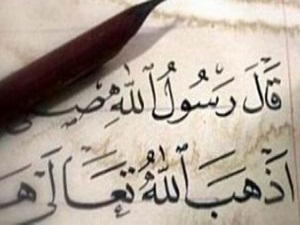 قَالَ رَسُولُ ٱللَّهِ
اذَهَبَ ٱللَّهُ تَعَالَى